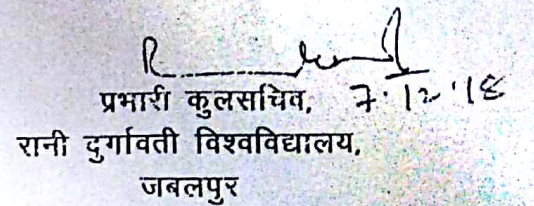 प्रभारी कुलसचिव, 7.12.18
रानी दुर्गावती विश्वविद्यालय,
जबलपुर